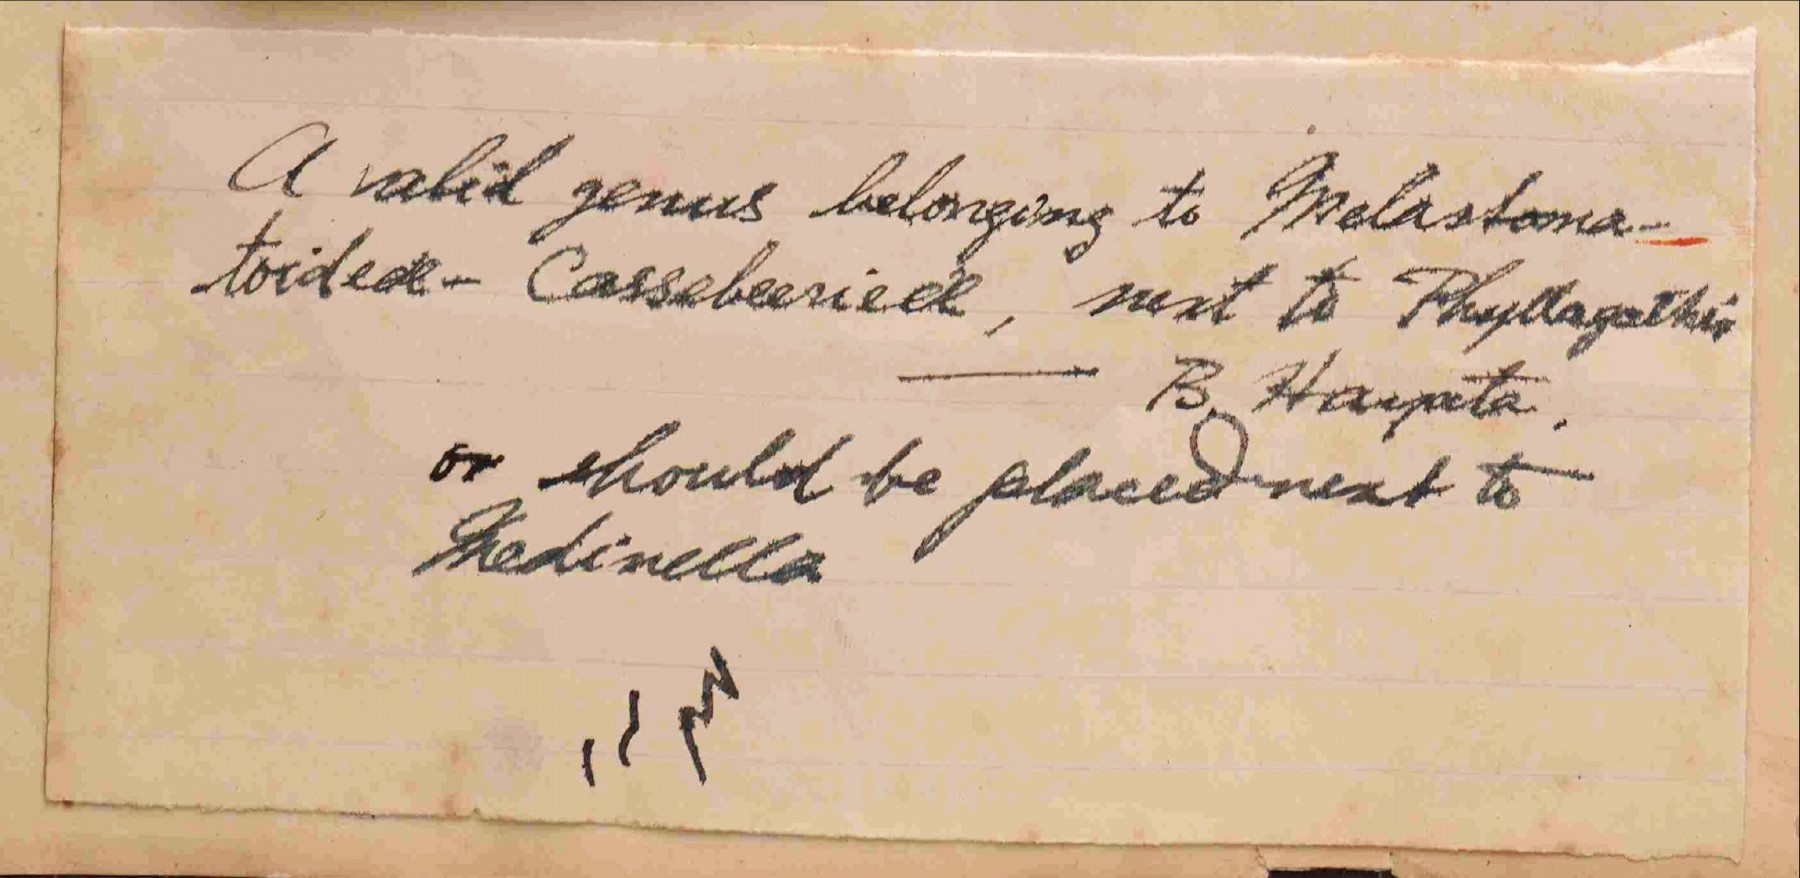 A valid genus belonging to Melastoma-
toideae - Cassebeerieae, next to Phyllagathis
— B. Hayata.
or should be placed next to
Medinella